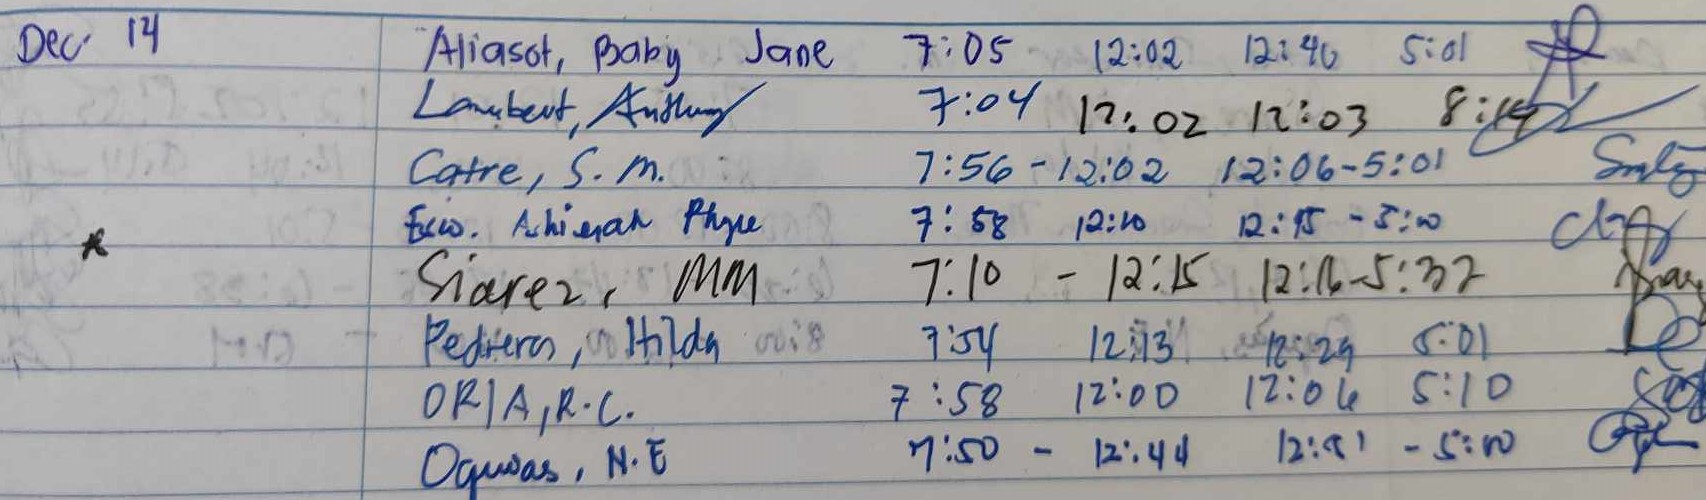 Dec. 14 Aliasot, Baby Jane 7:05 12:02 12:46 5:01
Lambert, Anthony 7:04 12:02 12:03 8:14
Catre, S. M. 7:56 - 12:02 12:06 - 5:01
7:58 12:10 12:15 - 5:00
* Siarez, MM 7:10 - 12:15 12:16 - 5:32
Hilda 7:54 12:13 12:29 5:01
ORIA, R.C. 7:58 12:00 12:06 5:10
N.E 7:50 - 12:44 - 5:00